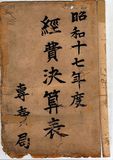 昭和十七年度
經費決算表
專賣局